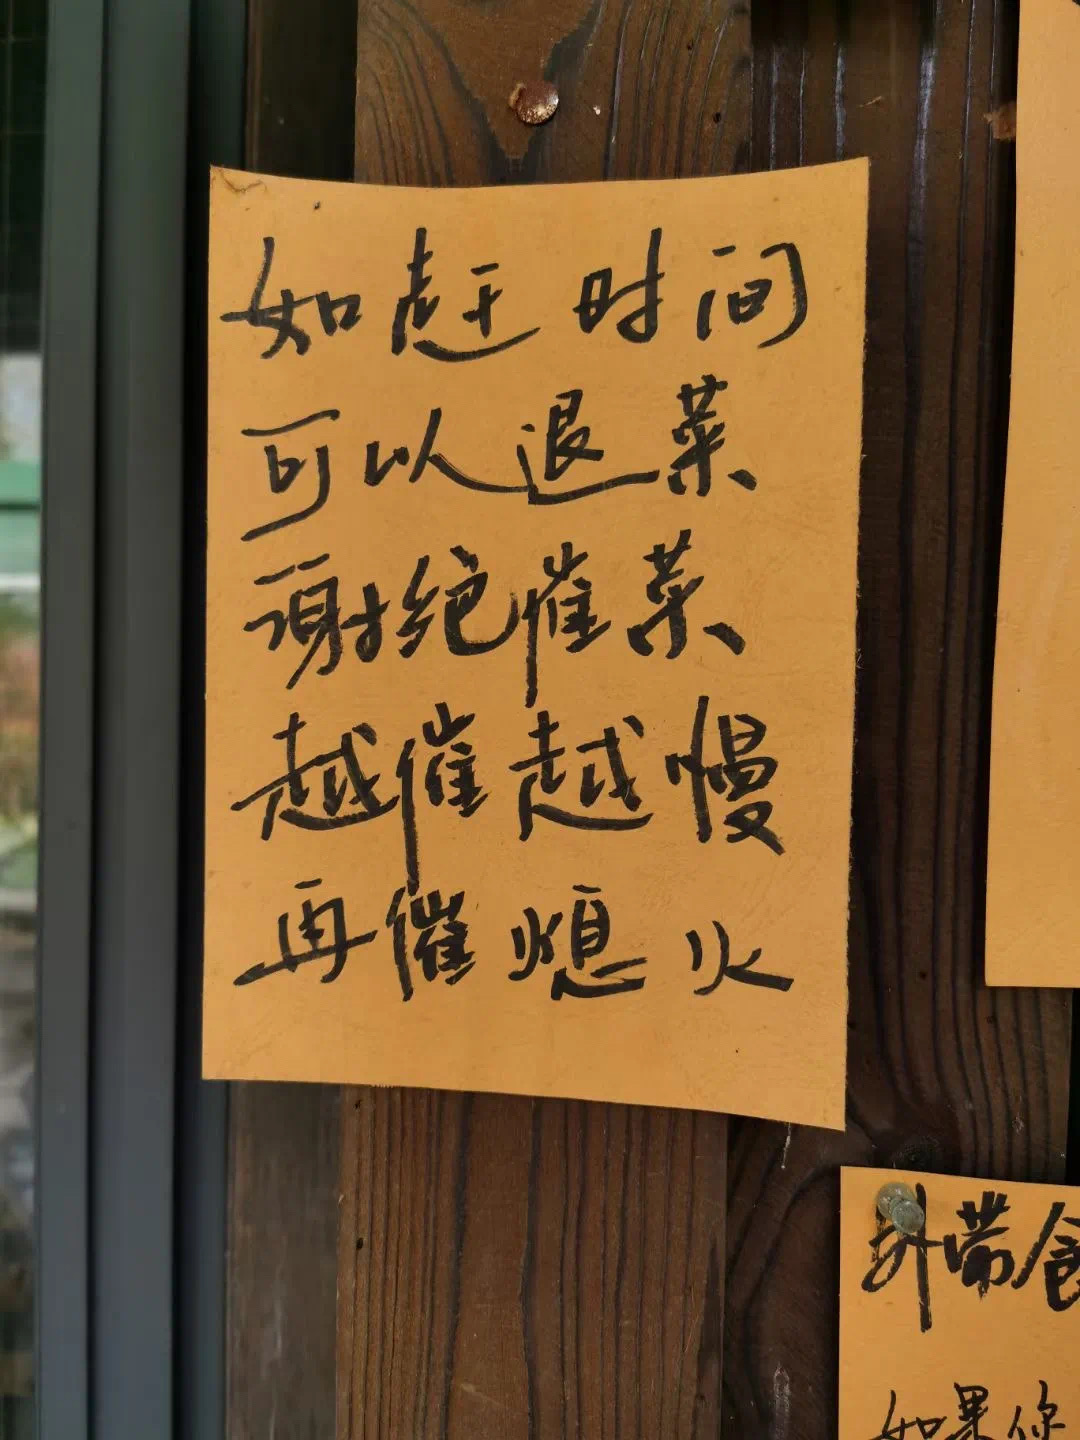 如赶时间
可以退菜
谢绝催菜
越催越慢
再催熄火
外带食
如果你